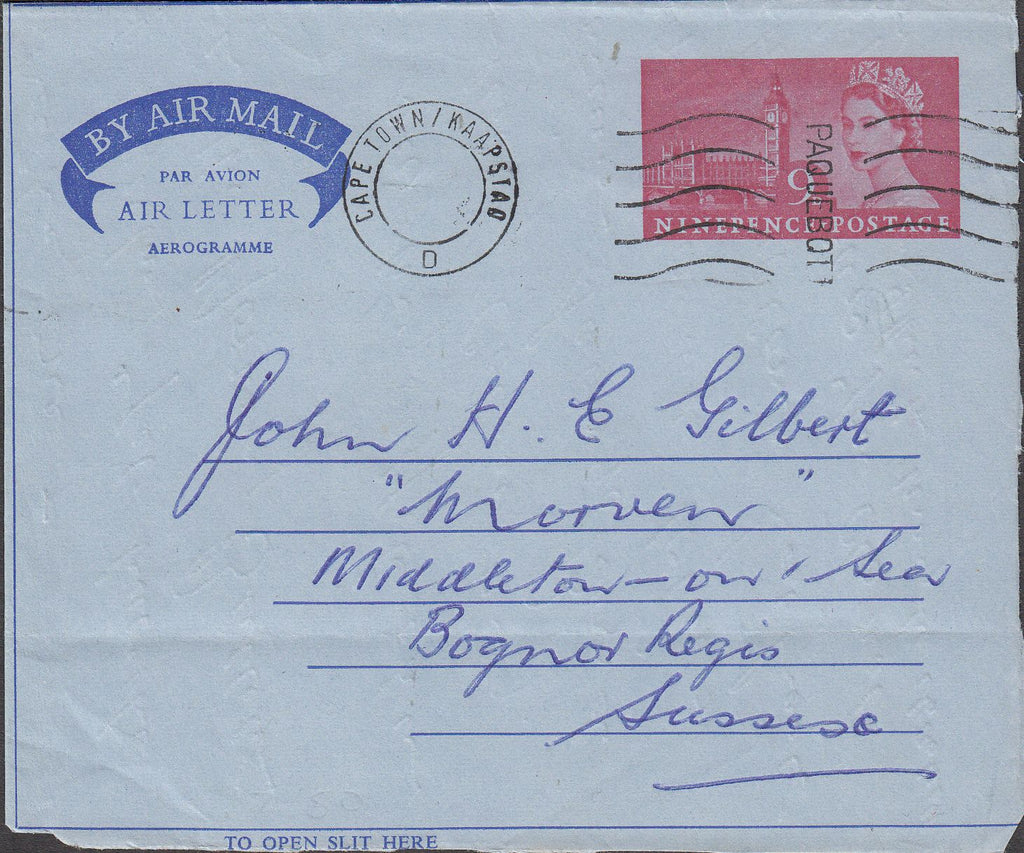 BY AIR MAIL
PAR AVION
AIR LETTER
AEROGRAMME
CAPE TOWN/KAAPSTAD
D
PAQUEBOT
9
NINEPENCE POSTAGE
John H. E Gilbert
"Morven"
Middleton-on-Sea
Bognor Regis
Sussex
TO OPEN SLIT HERE